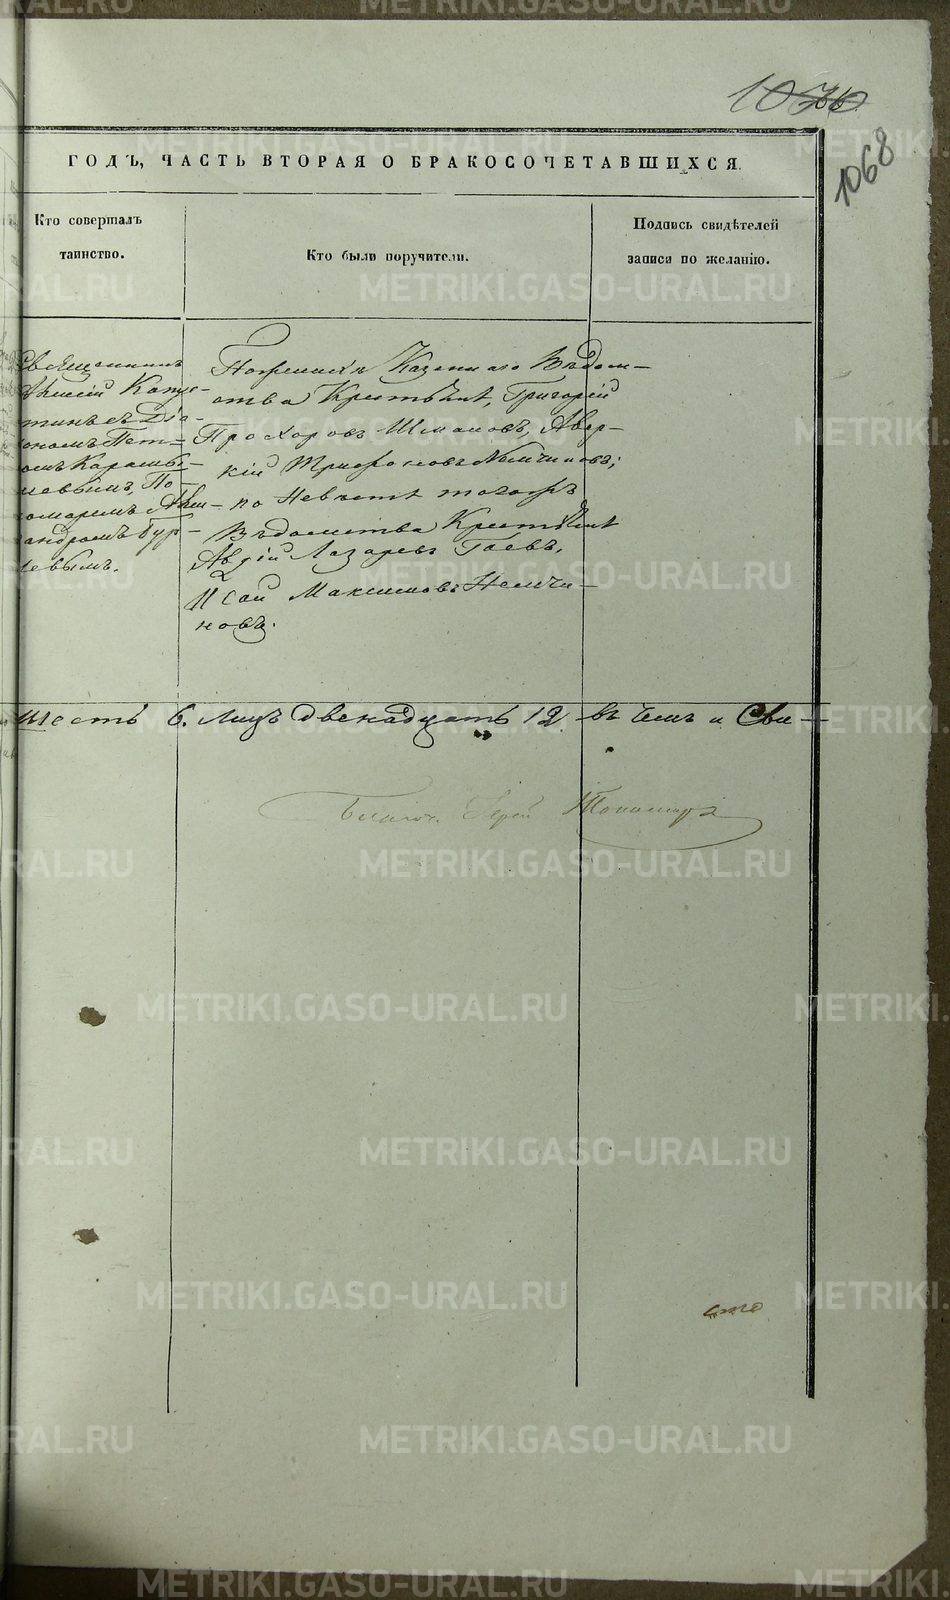 1068
ГОДЪ, ЧАСТЬ ВТОРАЯ О БРАКОСОЧЕТАВШИХСЯ.
Кто совершалъ
таинство.
Кто были поручители.
Подпись свидѣтелей
записи по желанію.
Священникъ
Капус-
тинъ съ Діа-
кономъ Пет-
ромъ Карамы-
шевымъ, По-
номаремъ Але-
ксандромъ Бур-
левымъ.
По женихѣ Казеннаго Вѣдом-
ства Крестьяне, Григорій
Прохоровъ Шмаковъ, Авер-
кій Трифоновъ Немчиновъ;
по Невѣстѣ тогожъ
Вѣдомства Крестьяне
Авдій Лазаревъ Гаевъ,
Исай Максимовъ Немчи-
новъ.
шесть 6. лицъ двенадцать 12. въ чемъ и Сви-
METRIKI.GASO-URAL.RU